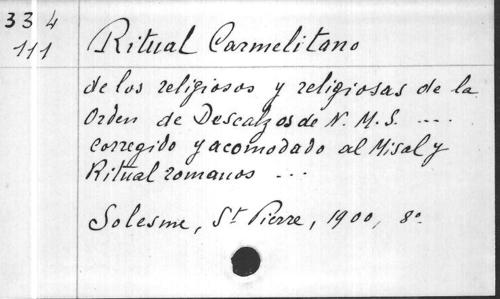 334
111
Ritual Carmelitano
de los religiosos y religiosas de la
Orden de Descalzos de N. M. S. ....
corregido y acomodado al Misal y
Ritual romanos ...
Solesme, St Pierre, 1900, 8º